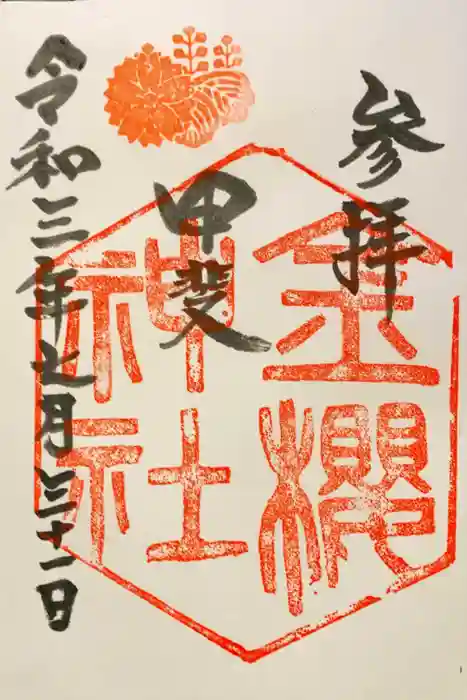 参拝
金櫻
神社
甲斐
令和三年七月三十一日